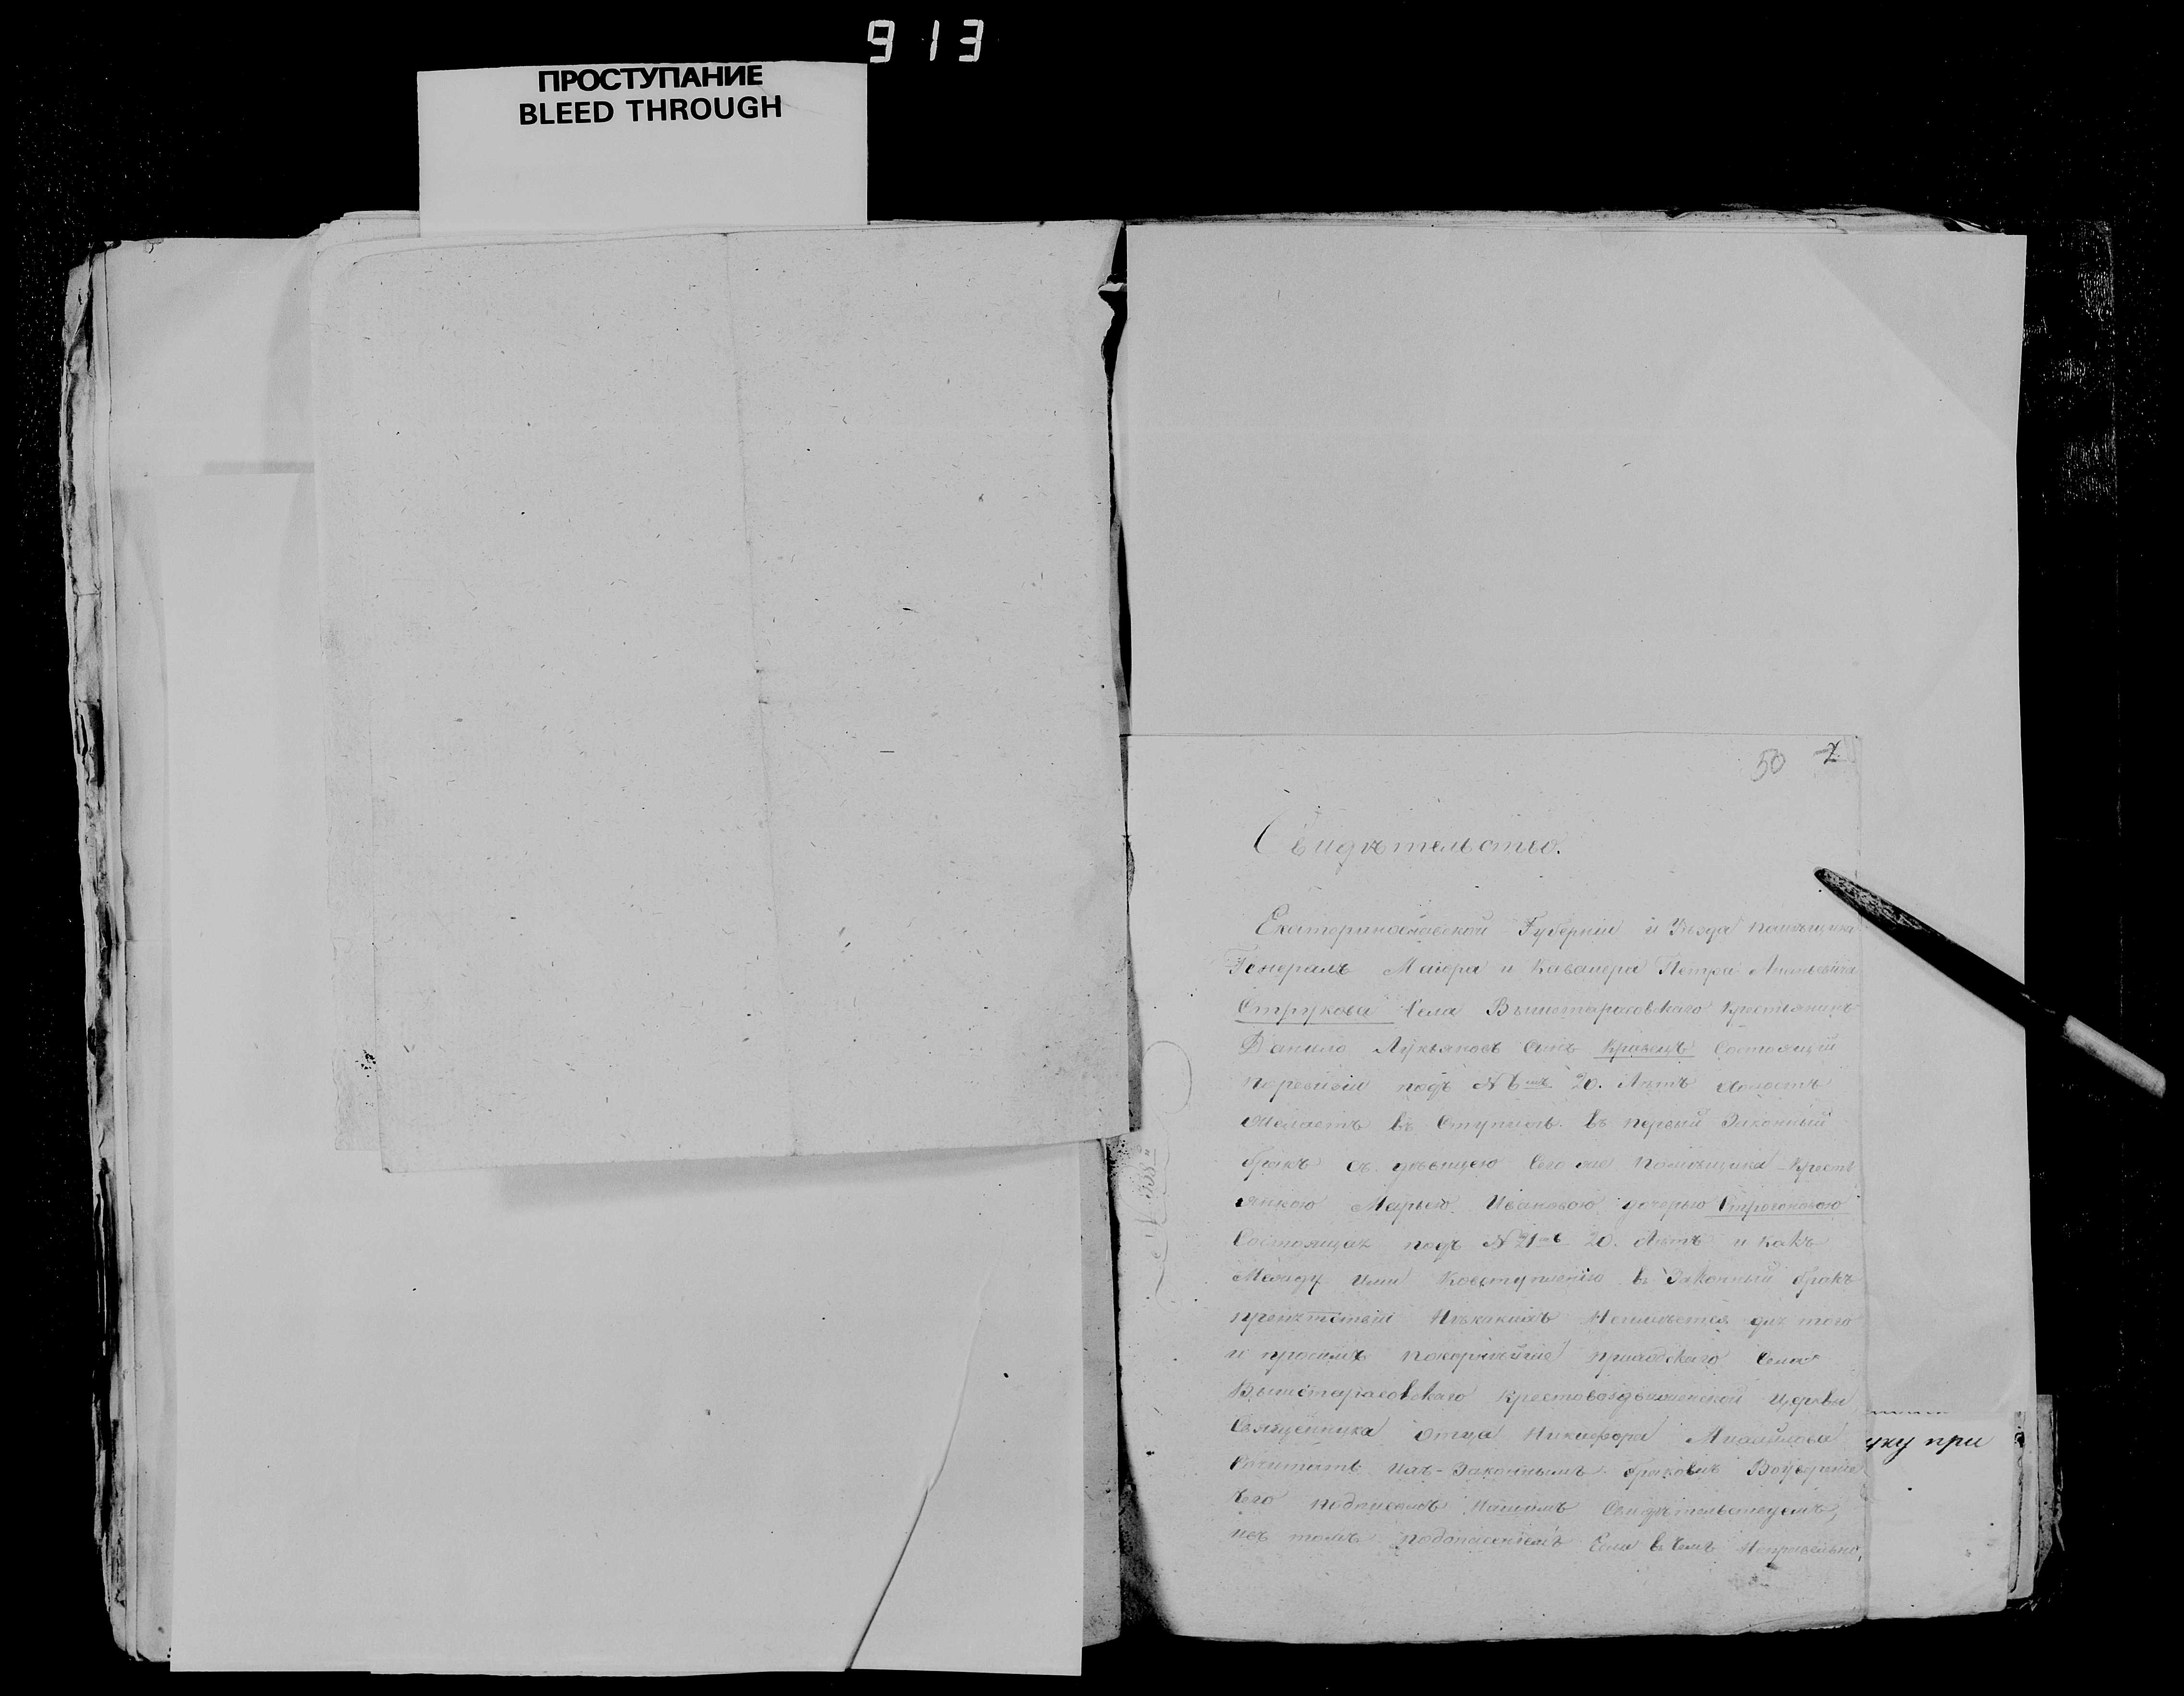 913
ПРОСТУПАНИЕ
BLEED THROUGH
50 2
Свидѣтельство.
Екатеринославской Губернии и Уѣзда помѣщика
Генералъ Маиора и Кавалера Петра Ананьевича
Струкова Села Вышетарасовскаго Крестьянинъ
Данило Лукьяновъ Сынъ Кравецъ Состоящий
по ревизіи подъ № 6мъ 20. Лѣтъ холостъ
желаетъ въ Ступить въ первый Законный
бракъ съ дѣвицею Его же помѣщика Кресть
янкою Марьею Ивановою дочерью
Состоящая подъ № 21мъ 20. Лѣтъ и какъ
Между Ими Ковступленію въ Законный бракъ
препятствій Нѣкакихъ Неимѣется для того
и просимъ покорнейше приходскаго Села
Вышетарасовскаго Крестовоздвиженской Церкви
Священника Отца Никифора Михайлова
Сочитать Ихъ Законнымъ бракомъ
Чего подписомъ Нашимъ Свидѣтельствуемъ,
томъ Если въ Чемъ Неправельно,
уку при